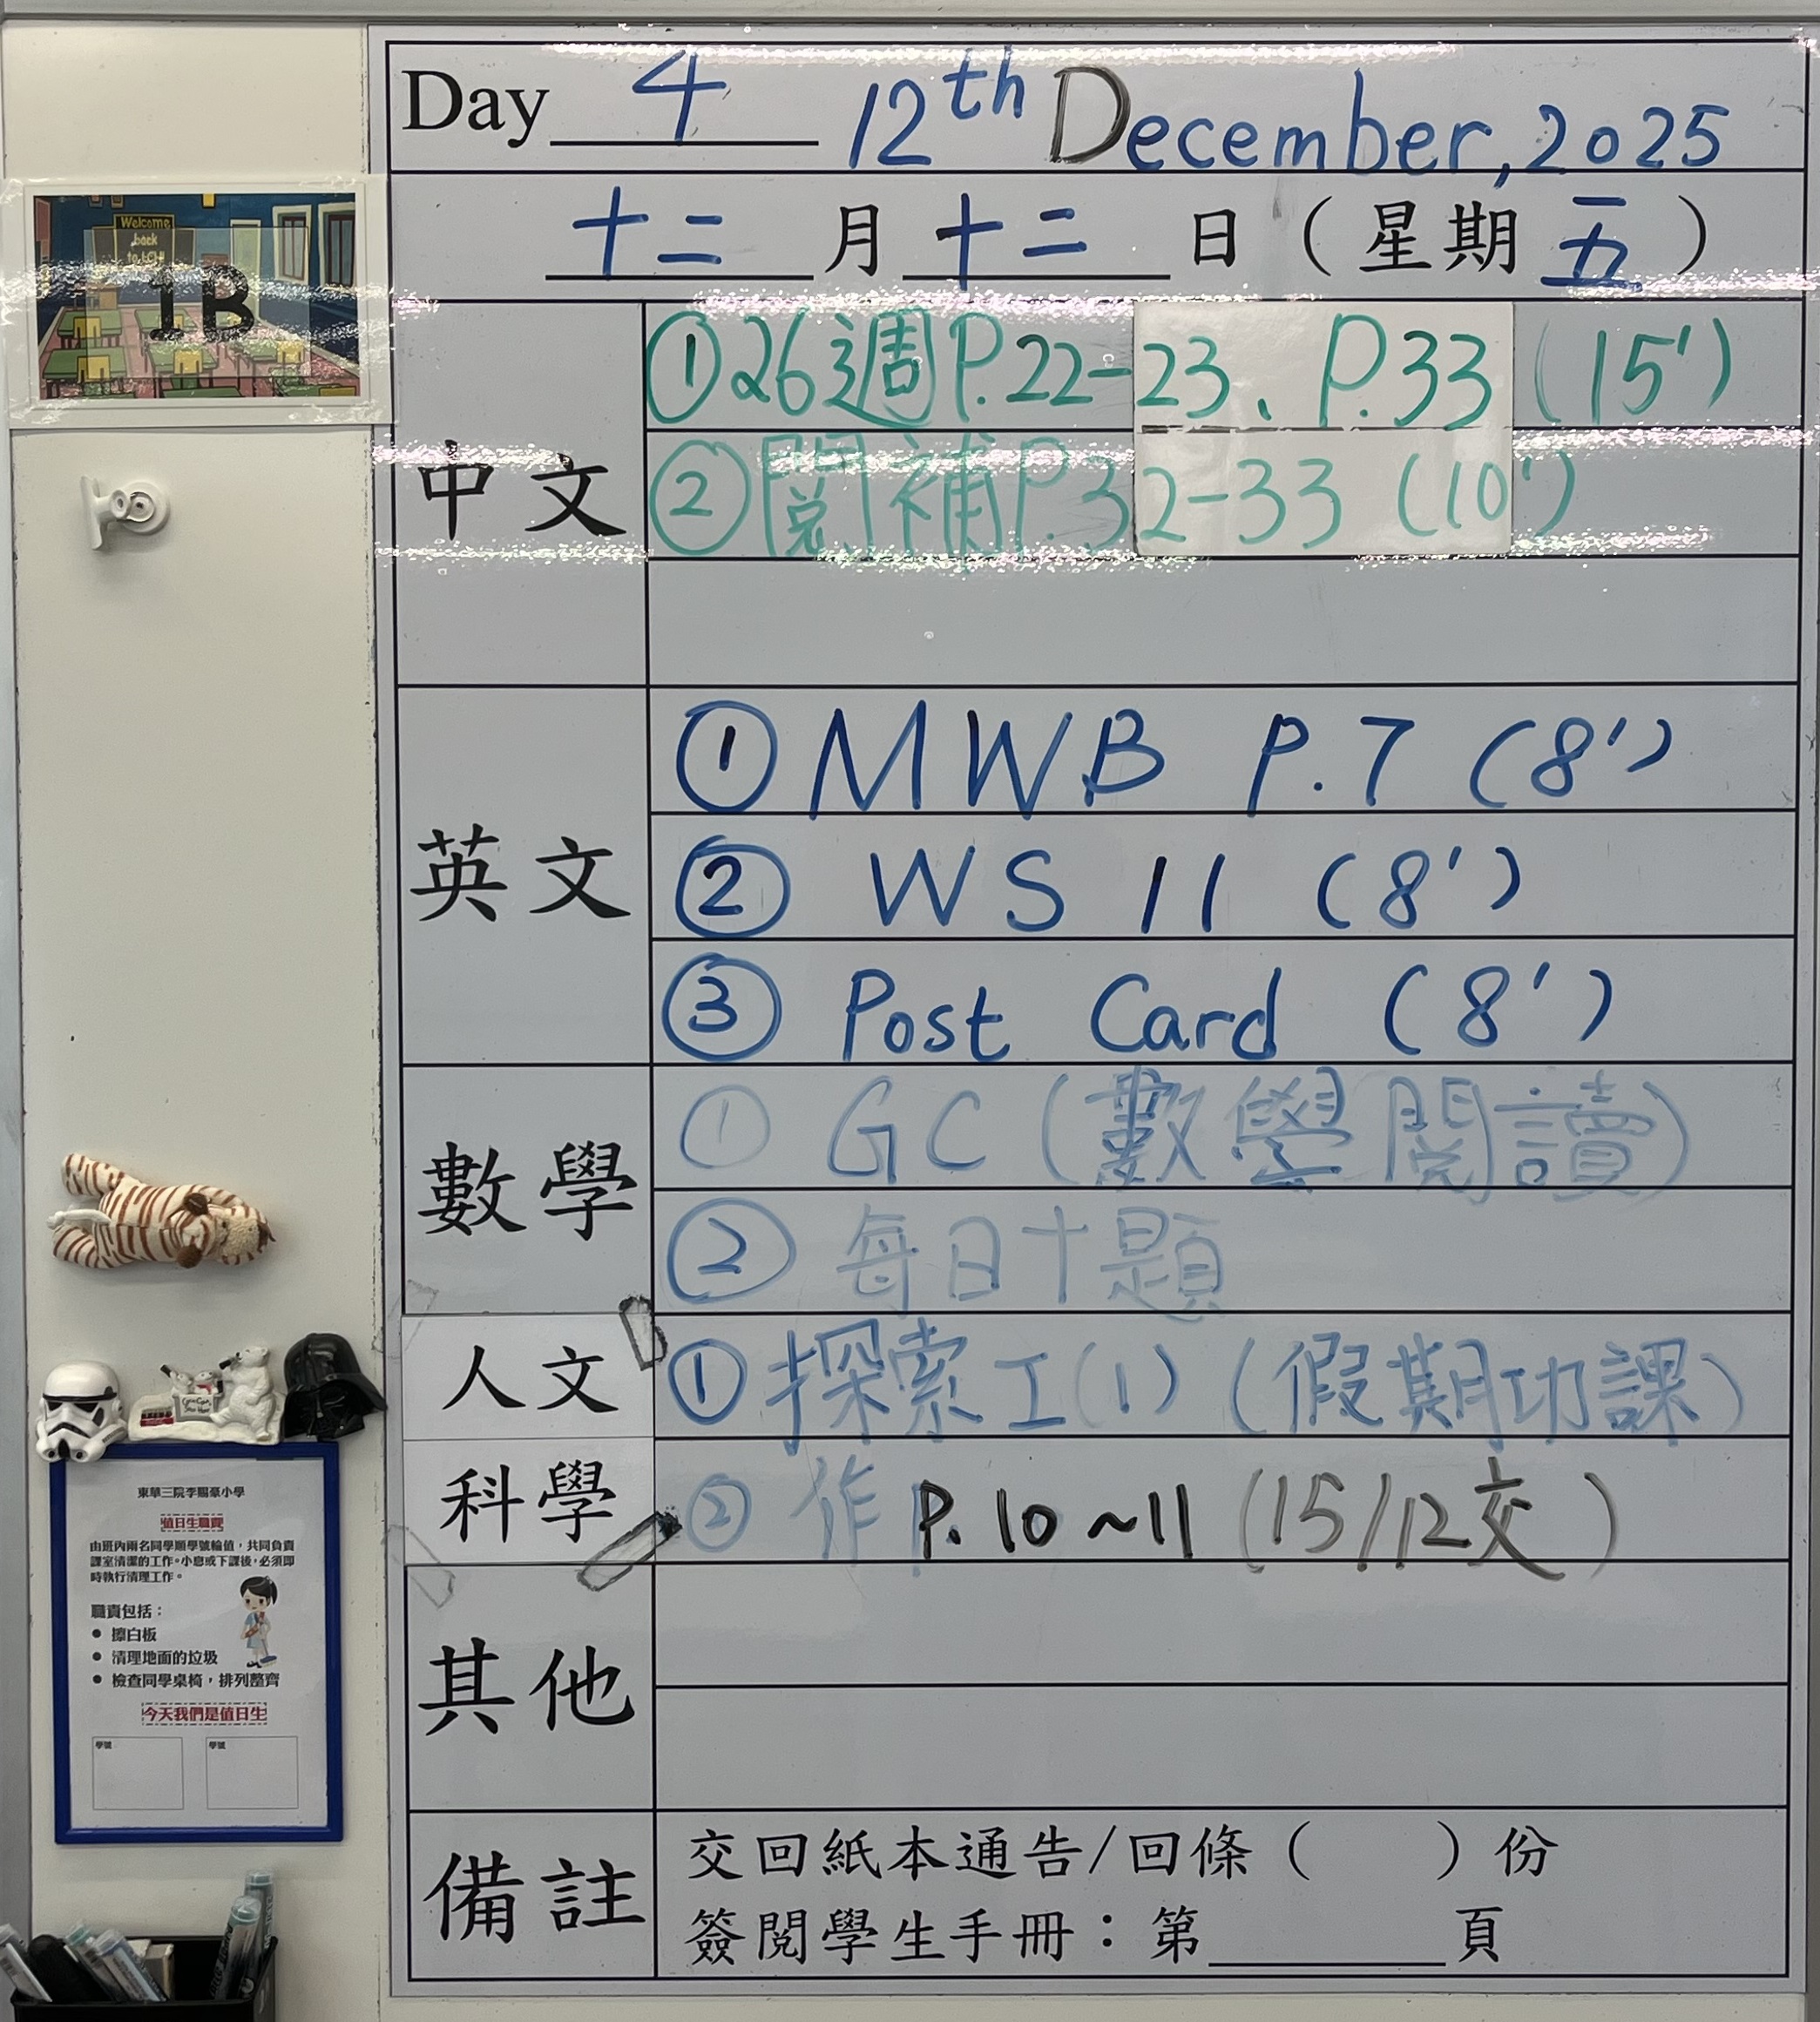 Day 4 12th December, 2025
十二 月 十二 日（星期 五）
Welcome
back
1B
中文
① 26週 P.22-23、P.33 (15')
② 閱補 P.32-33 (10')
英文
① MWB P.7 (8')
② WS 11 (8')
③ Post Card (8')
數學
① GC (數學閱讀)
② 每日十題
人文
① 探索工(1) (假期功課)
科學
② 作 P.10~11 (15/12交)
其他
備註
交回紙本通告/回條（ ）份
簽閱學生手冊：第 頁
東華三院李賜豪小學
值日生職責
由班內兩名同學順學號輪值，共同負責
課室清潔的工作。小息或下課後，必須即
時執行清理工作。
職責包括：
● 擦白板
● 清理地面的垃圾
● 檢查同學桌椅，排列整齊
今天我們是值日生
學號 學號